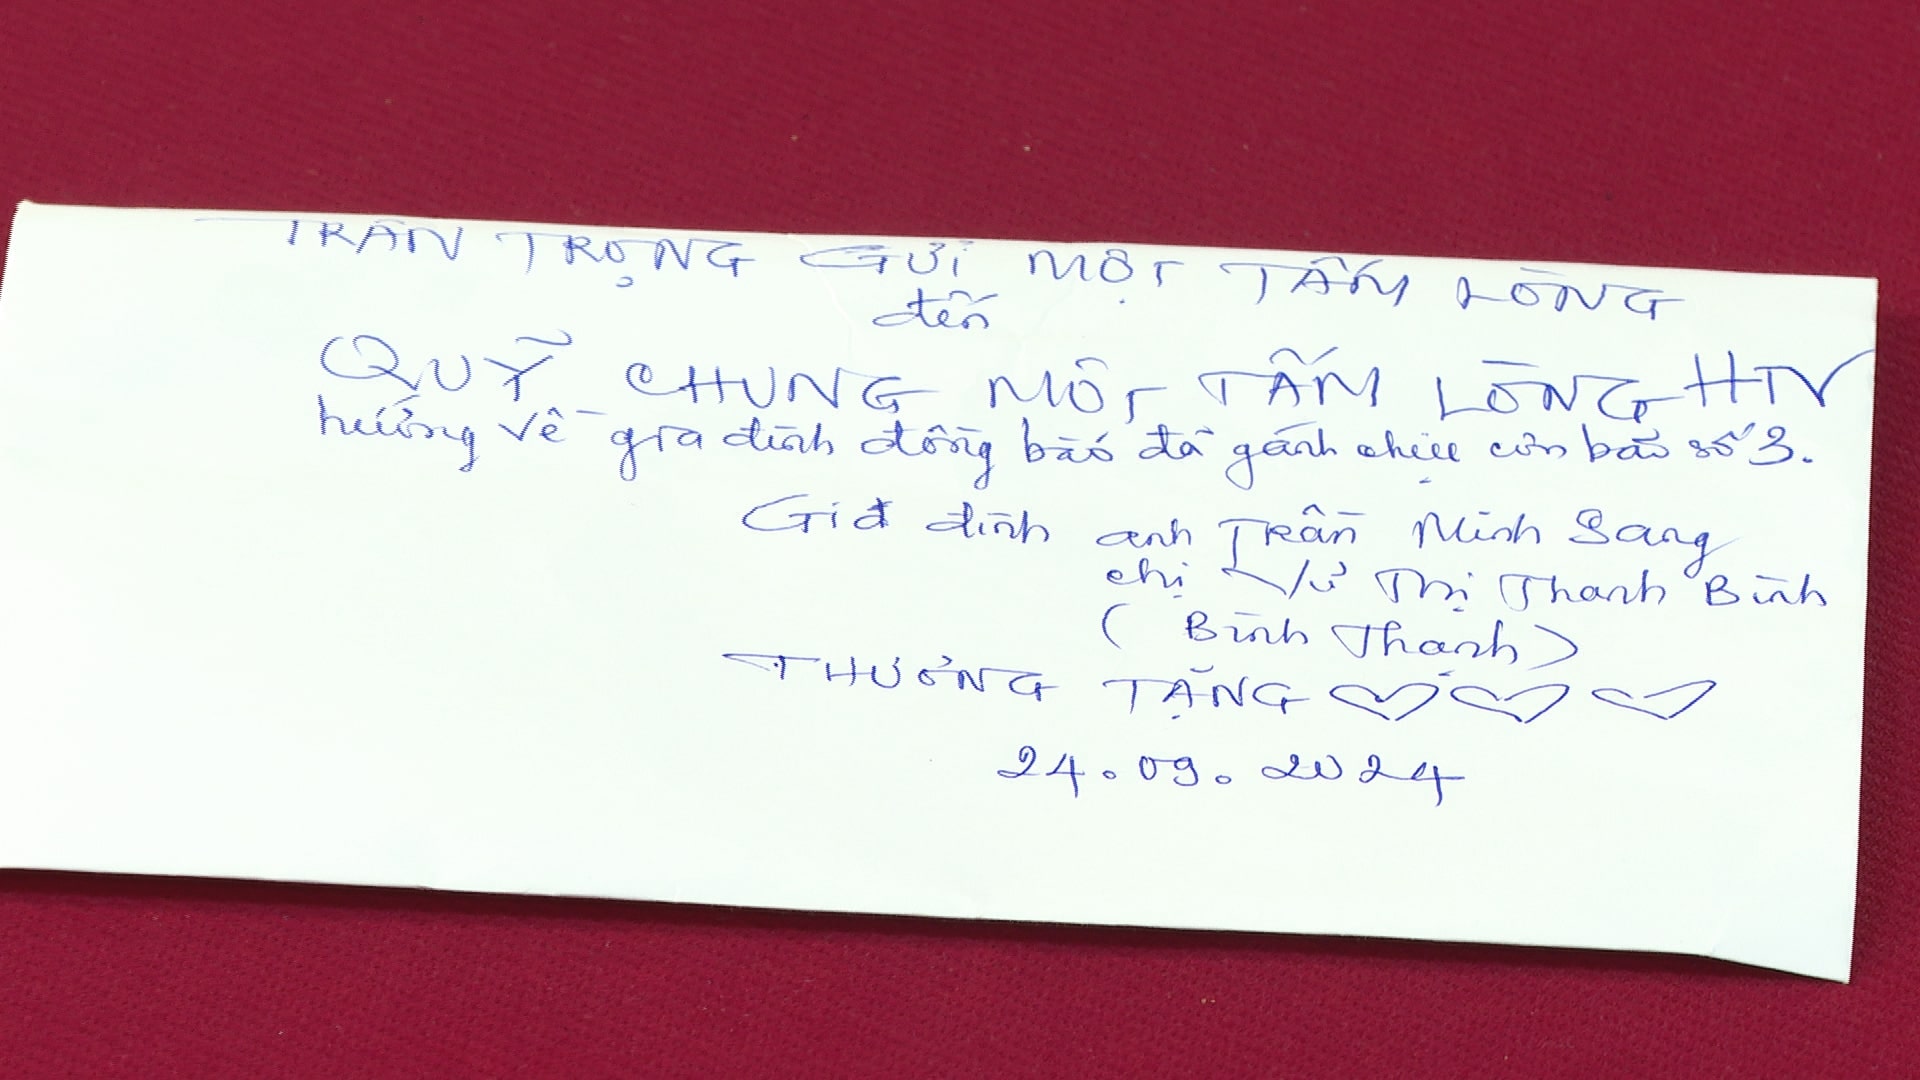 TRÂN TRỌNG GỬI MỘT TẤM LÒNG
đến
QUỸ CHUNG MỘT TẤM LÒNG HTV
hướng về gia đình đồng bào đã gánh chịu cơn bão số 3.
Gia đình anh Trần Minh Sang
chị Lữ Thị Thanh Bình
(Bình Thạnh)
THƯƠNG TẶNG ♡♡♡
24.09.2024